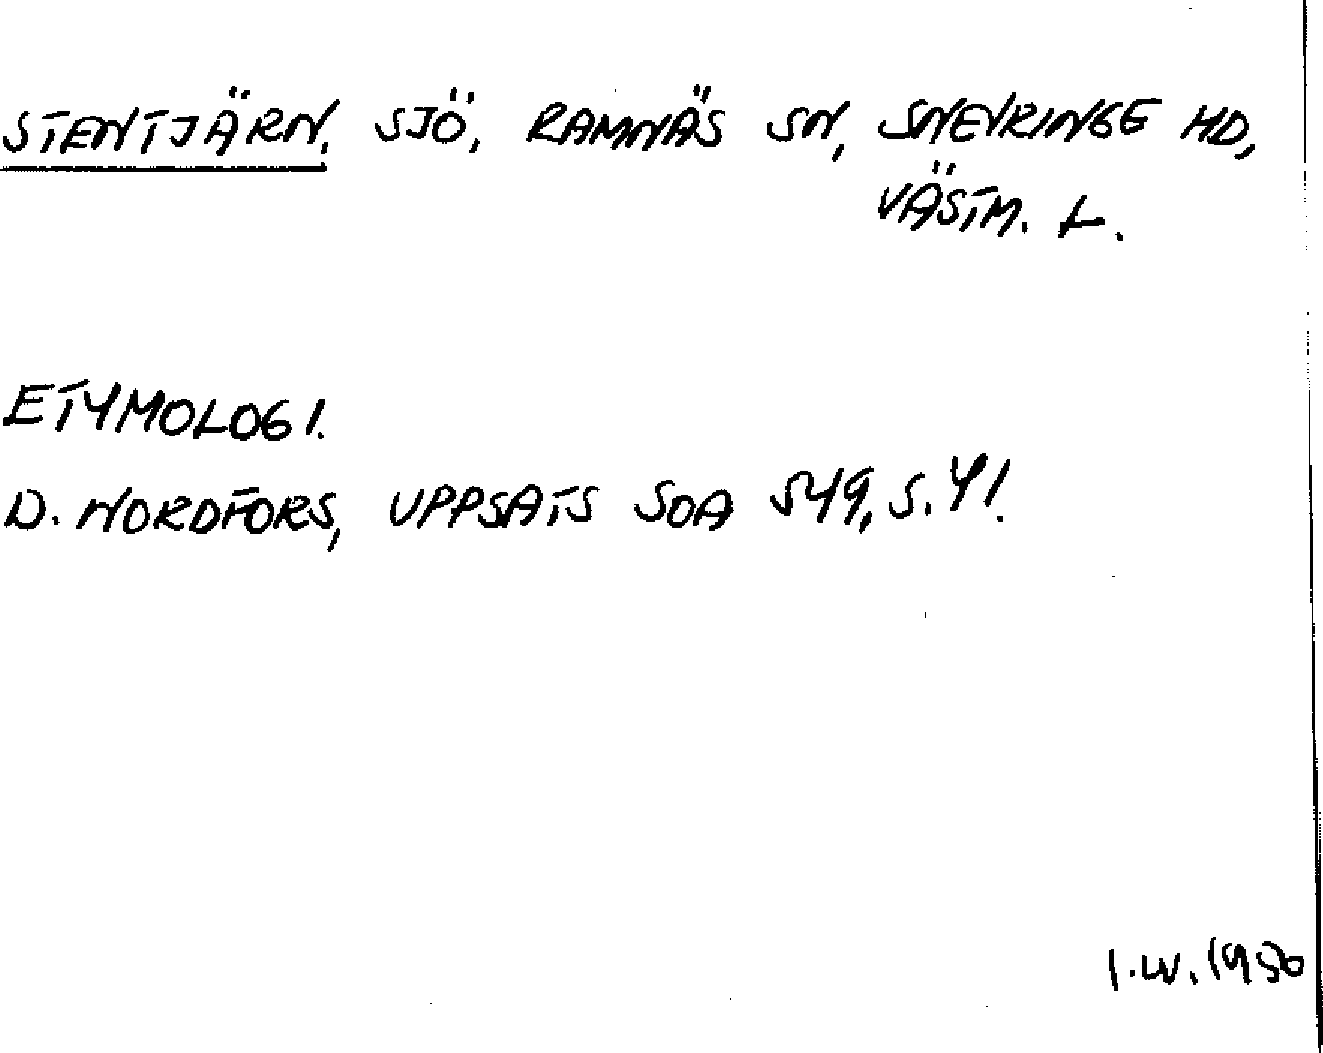 STENTJÄRN, SJÖ, RAMNÄS SN, SNEVRINGE HD,
VÄSTM. L.
ETYMOLOGI.
D. NORDFORS, UPPSATS SOA 549, S. 41.
I.W. 1980